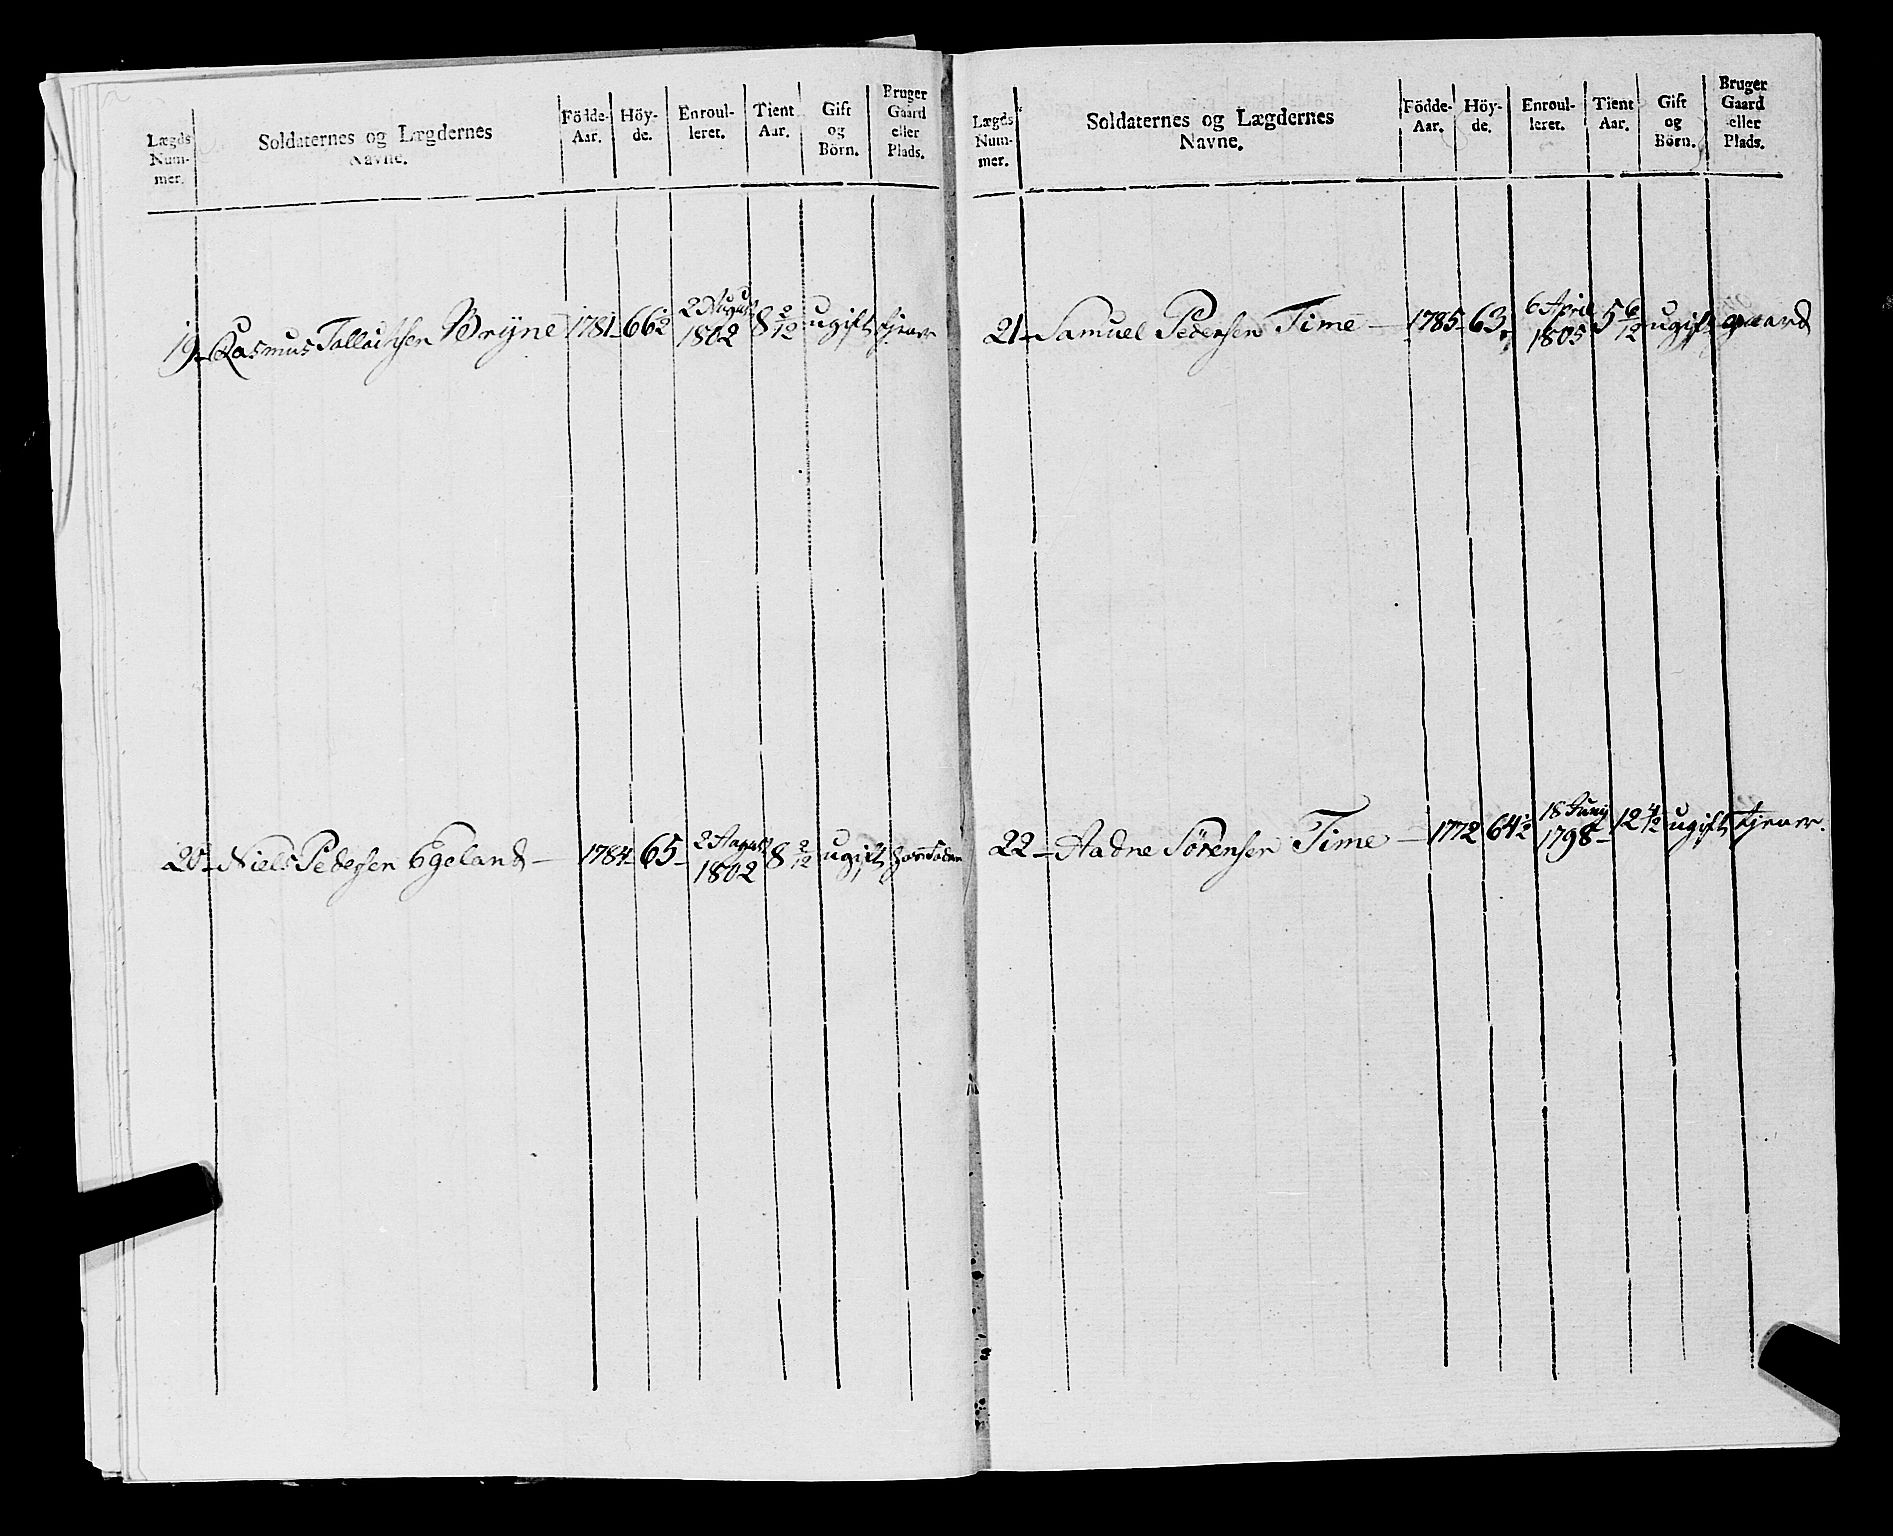 Lægds Num- mer.
Soldaternes og Lægdernes Navne.
Födde- Aar.
Höy- de.
Enroul- leret.
Tient Aar.
Gift og Börn.
Bruger Gaard eller Plads.
19 Rasmus Bryne 1781 66½ 2 August 1802 8 2/12 ugift tjener
20 Niels Pedersen Egeland 1784 65 2 August 1802 8 2/12 ugift
Lægds Num- mer.
Soldaternes og Lægdernes Navne.
Födde- Aar.
Höy- de.
Enroul- leret.
Tient Aar.
Gift og Börn.
Bruger Gaard eller Plads.
21 Samuel Pedersen Time 1785 63 6 April 1805 5 6/12 ugift gaard
22 Aadne Sörensen Time 1772 64½ 18 Juny 1798 12 4/12 ugift tjener.